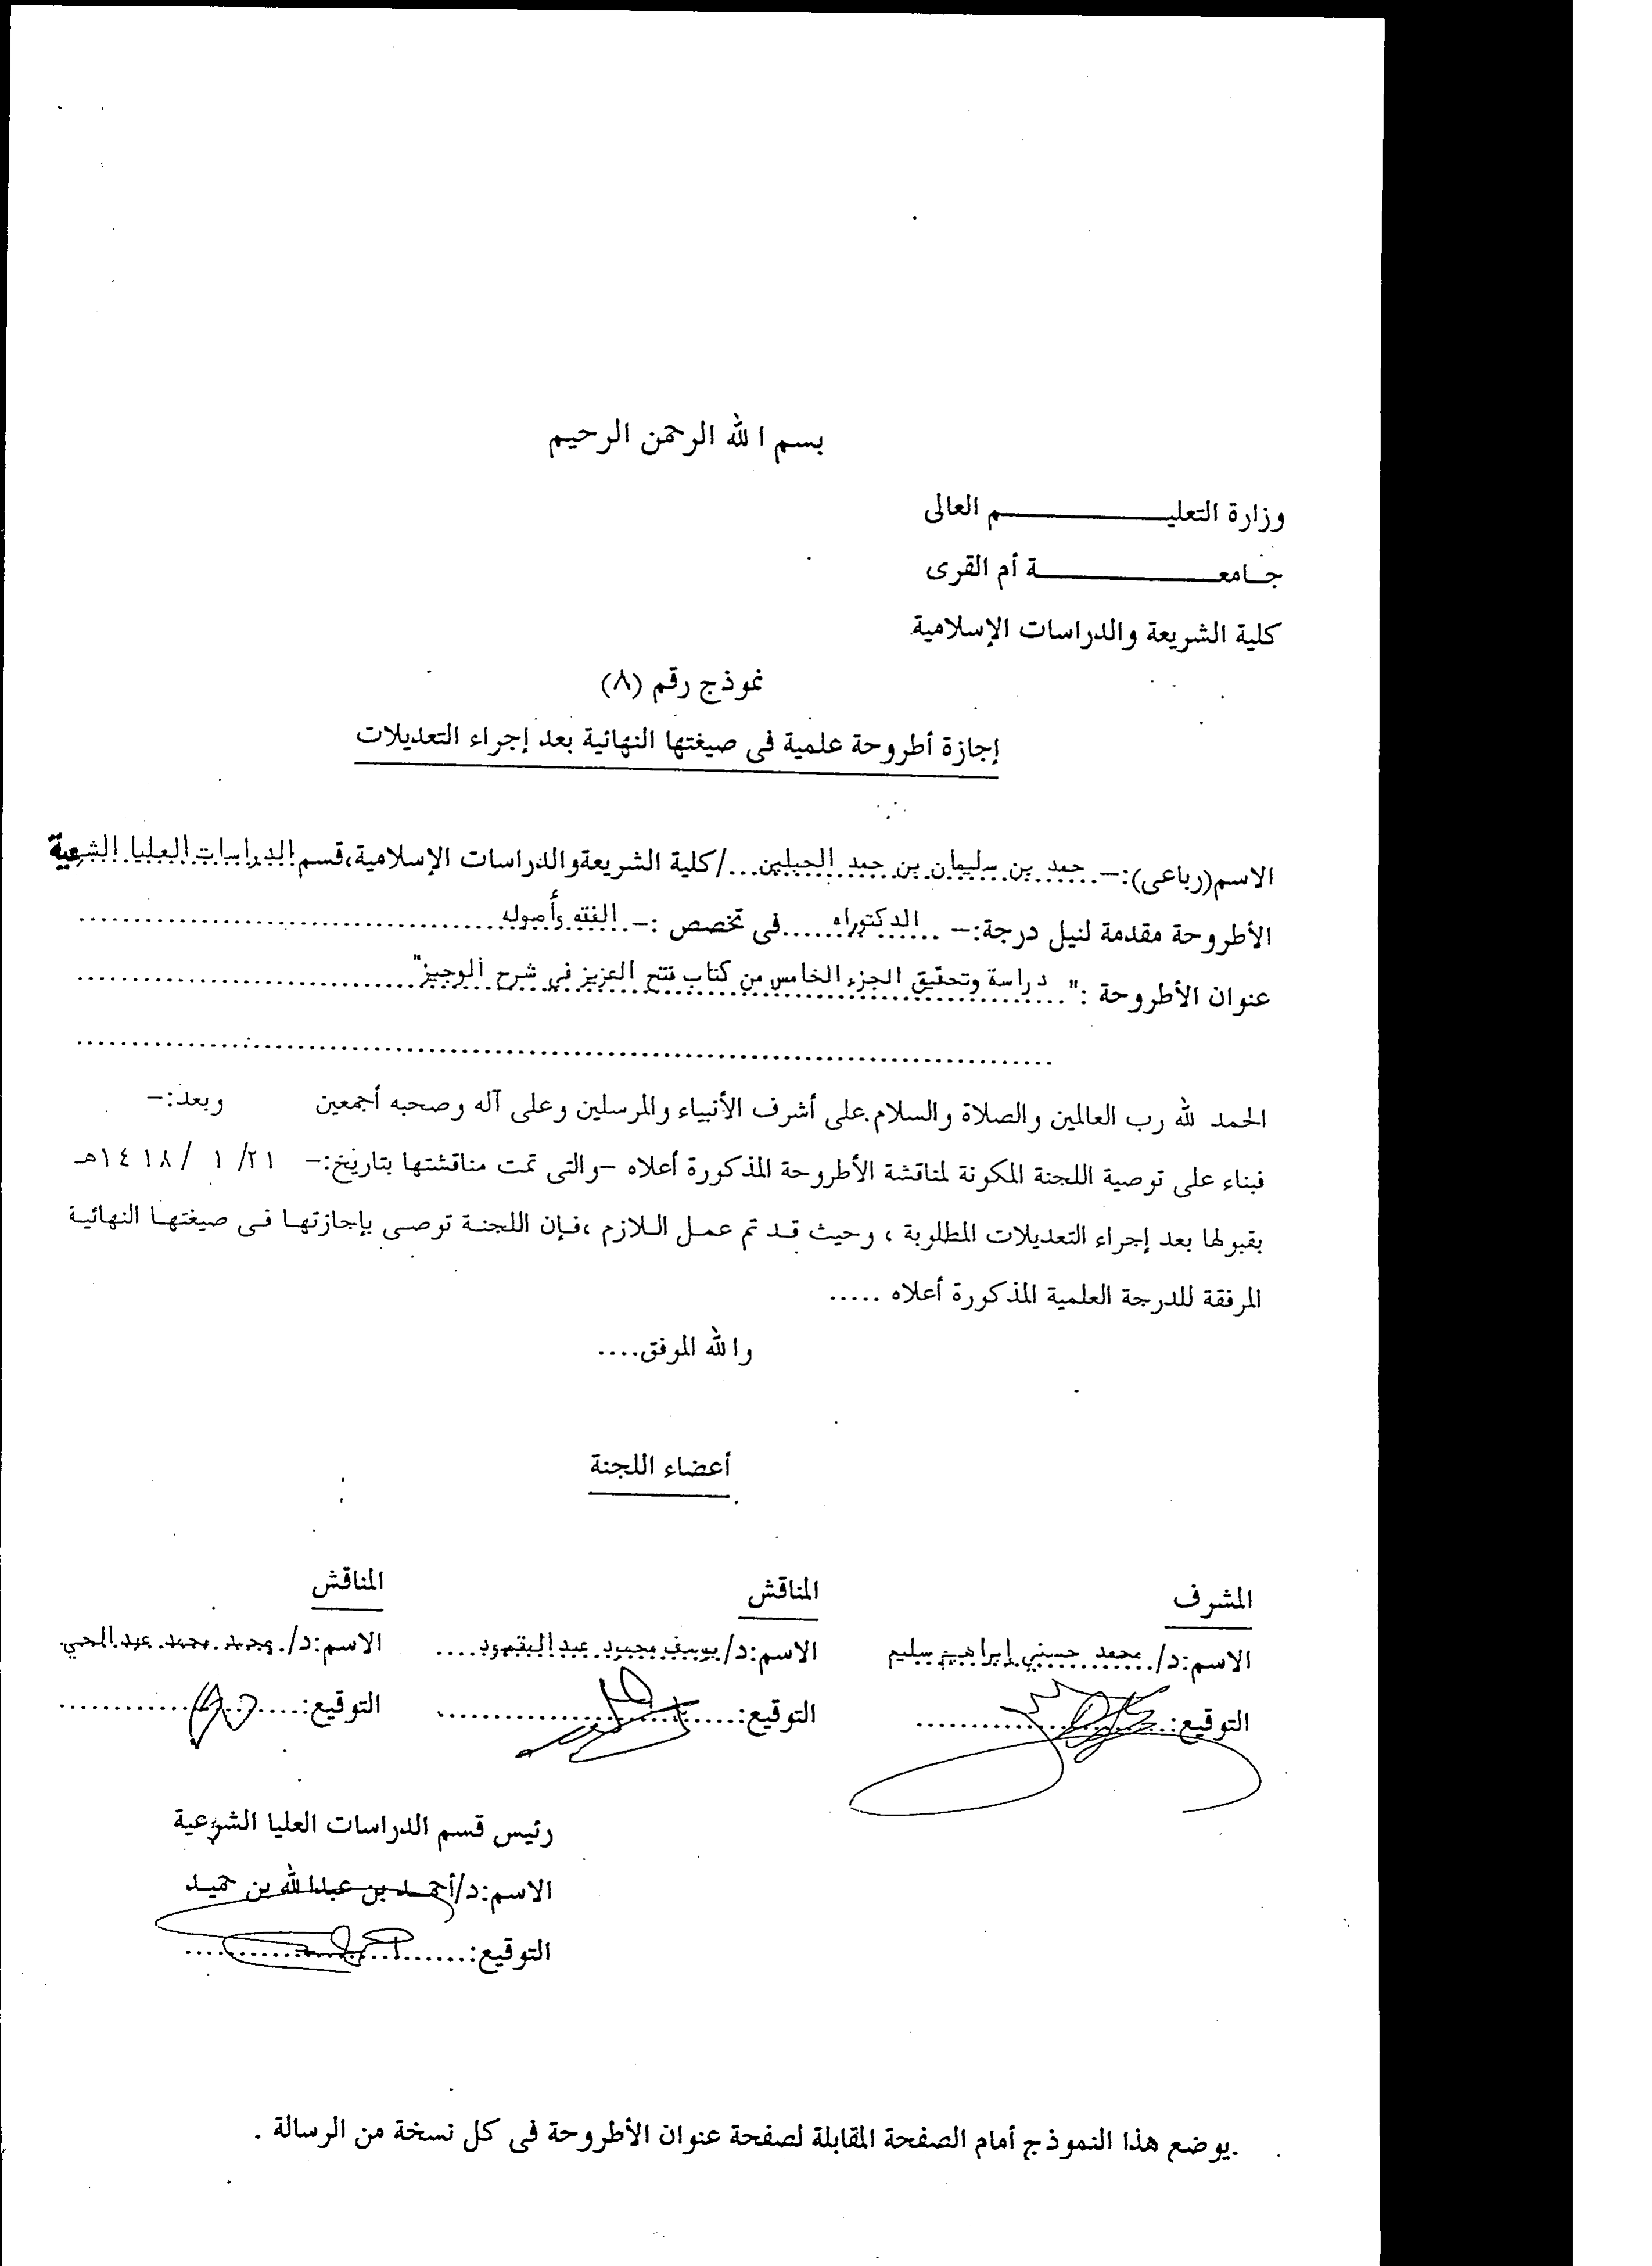 بسم الله الرحمن الرحيم
وزارة التعليـــــــــــم العالى
جـامعـــــــــــة أم القرى
كلية الشريعة والدراسات الإسلامية
نموذج رقم (٨)
إجازة أطروحة علمية فى صيغتها النهائية بعد إجراء التعديلات
الاسم(رباعى):-... حمد بن سليمان بن حمد .../كلية الشريعة والدراسات الإسلامية،قسم الدراسات العليا الشرعية
الأطروحة مقدمة لنيل درجة:- ..الدكتوراه......فى تخصص :-..الفقه وأصوله..............
عنوان الأطروحة :"..دراسة وتحقيق الجزء الخامس من كتاب فتح العزيز في شرح الوجيز"..............
الحمد لله رب العالمين والصلاة والسلام على أشرف الأنبياء والمرسلين وعلى آله وصحبه أجمعين وبعد:-
فبناء على توصية اللجنة المكونة لمناقشة الأطروحة المذكورة أعلاه -والتى تمت مناقشتها بتاريخ:- ٢١/ ١ /١٤١٨هـ
بقبولها بعد إجراء التعديلات المطلوبة ، وحيث قد تم عمل اللازم ،فإن اللجنة توصى بإجازتها فى صيغتها النهائية
المرفقة للدرجة العلمية المذكورة أعلاه .....
والله الموفق....
أعضاء اللجنة
المشرف المناقش المناقش
الاسم:د/.محمد حسني إبراهيم سليم الاسم:د/يوسف محمود عبد المقصود.... الاسم:د/.محمد محمد عبد الحي
التوقيع:.................. التوقيع:.................. التوقيع:..................
رئيس قسم الدراسات العليا الشرعية
الاسم:د/أحمـد بن عبدالله بن حميـد
التوقيع:..................
.يوضع هذا النموذج أمام الصفحة المقابلة لصفحة عنوان الأطروحة فى كل نسخة من الرسالة .